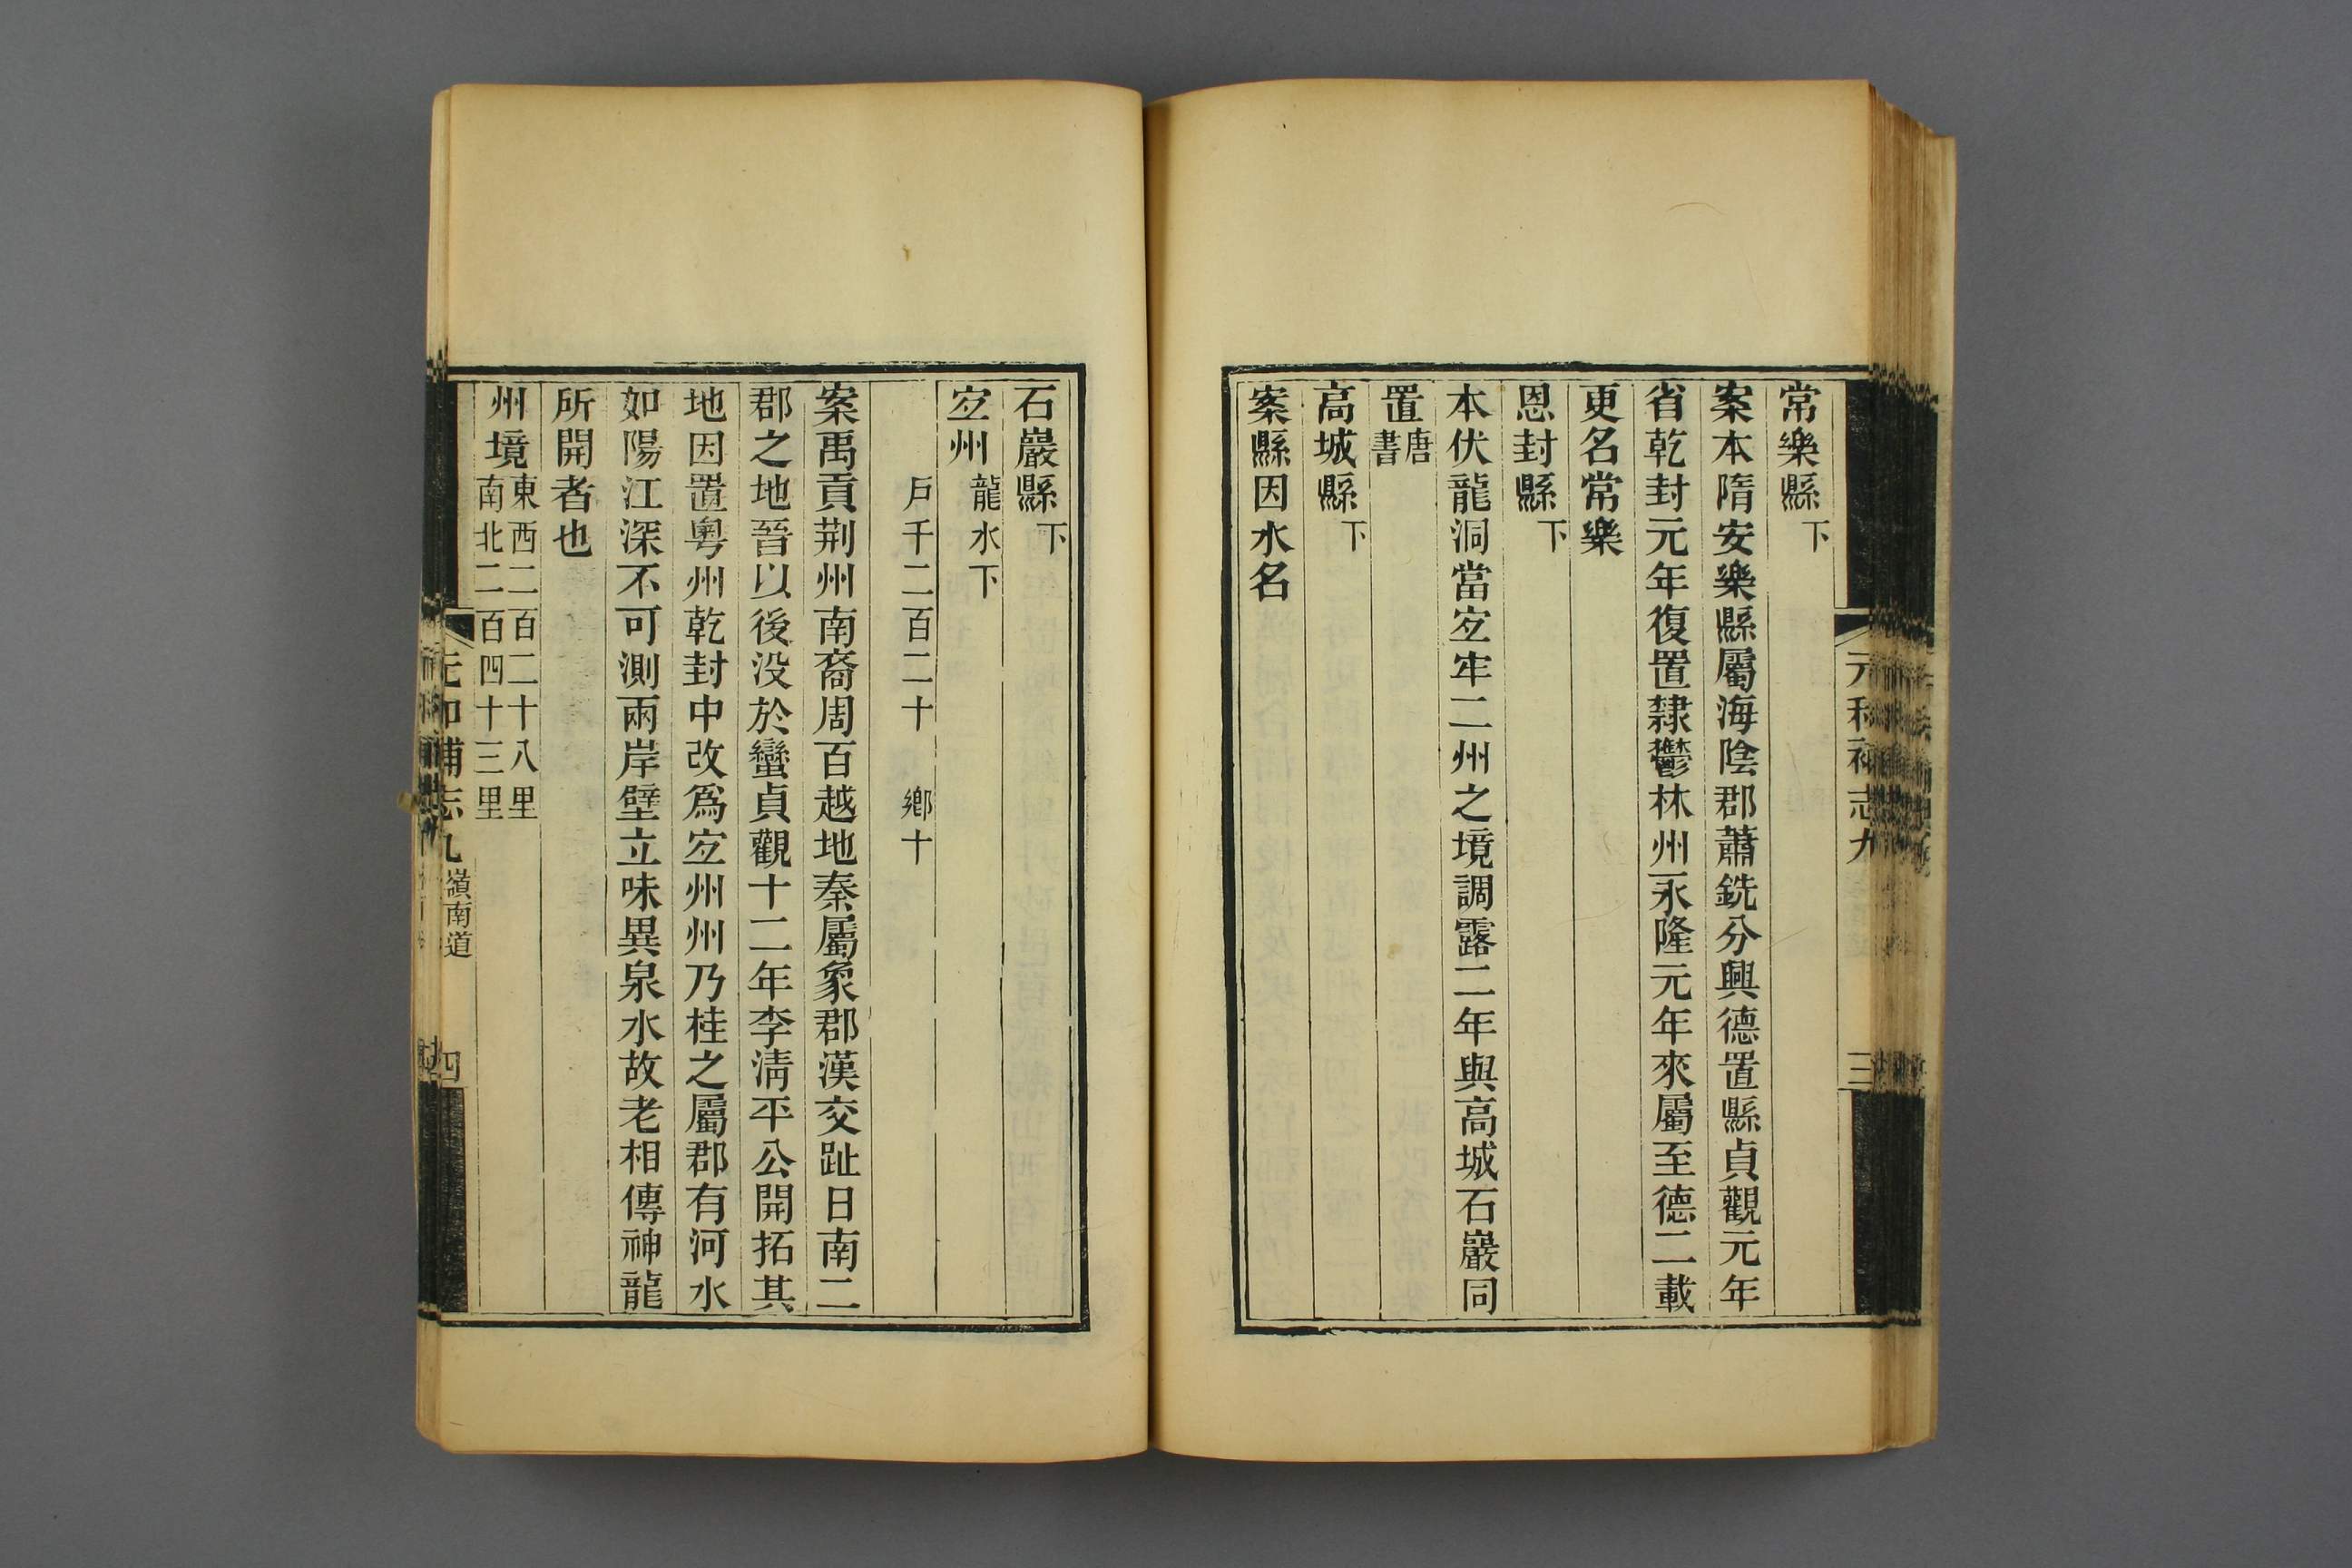 常樂縣下
案本隋安樂縣屬海陰郡蕭銑分興德置縣貞觀元年
省乾封元年復置隸鬱林州永隆元年來屬至德二載
更名常樂
恩封縣下
本伏龍洞當㝎牢二州之境調露二年與高城石巖同
置唐書
高城縣下
案縣因水名
元和補志九
三
石巖縣下
㝎州龍水下
戶千二百二十 鄉十
案禹貢荆州南裔周百越地秦屬象郡漢交趾日南二
郡之地晉以後没於蠻貞觀十二年李淸平公開拓其
地因置粵州乾封中改爲㝎州州乃桂之屬郡有河水
如陽江深不可測兩岸壁立味異泉水故老相傳神龍
所開者也
州境東西二百二十八里南北二百四十三里
元和補志九 嶺南道
四